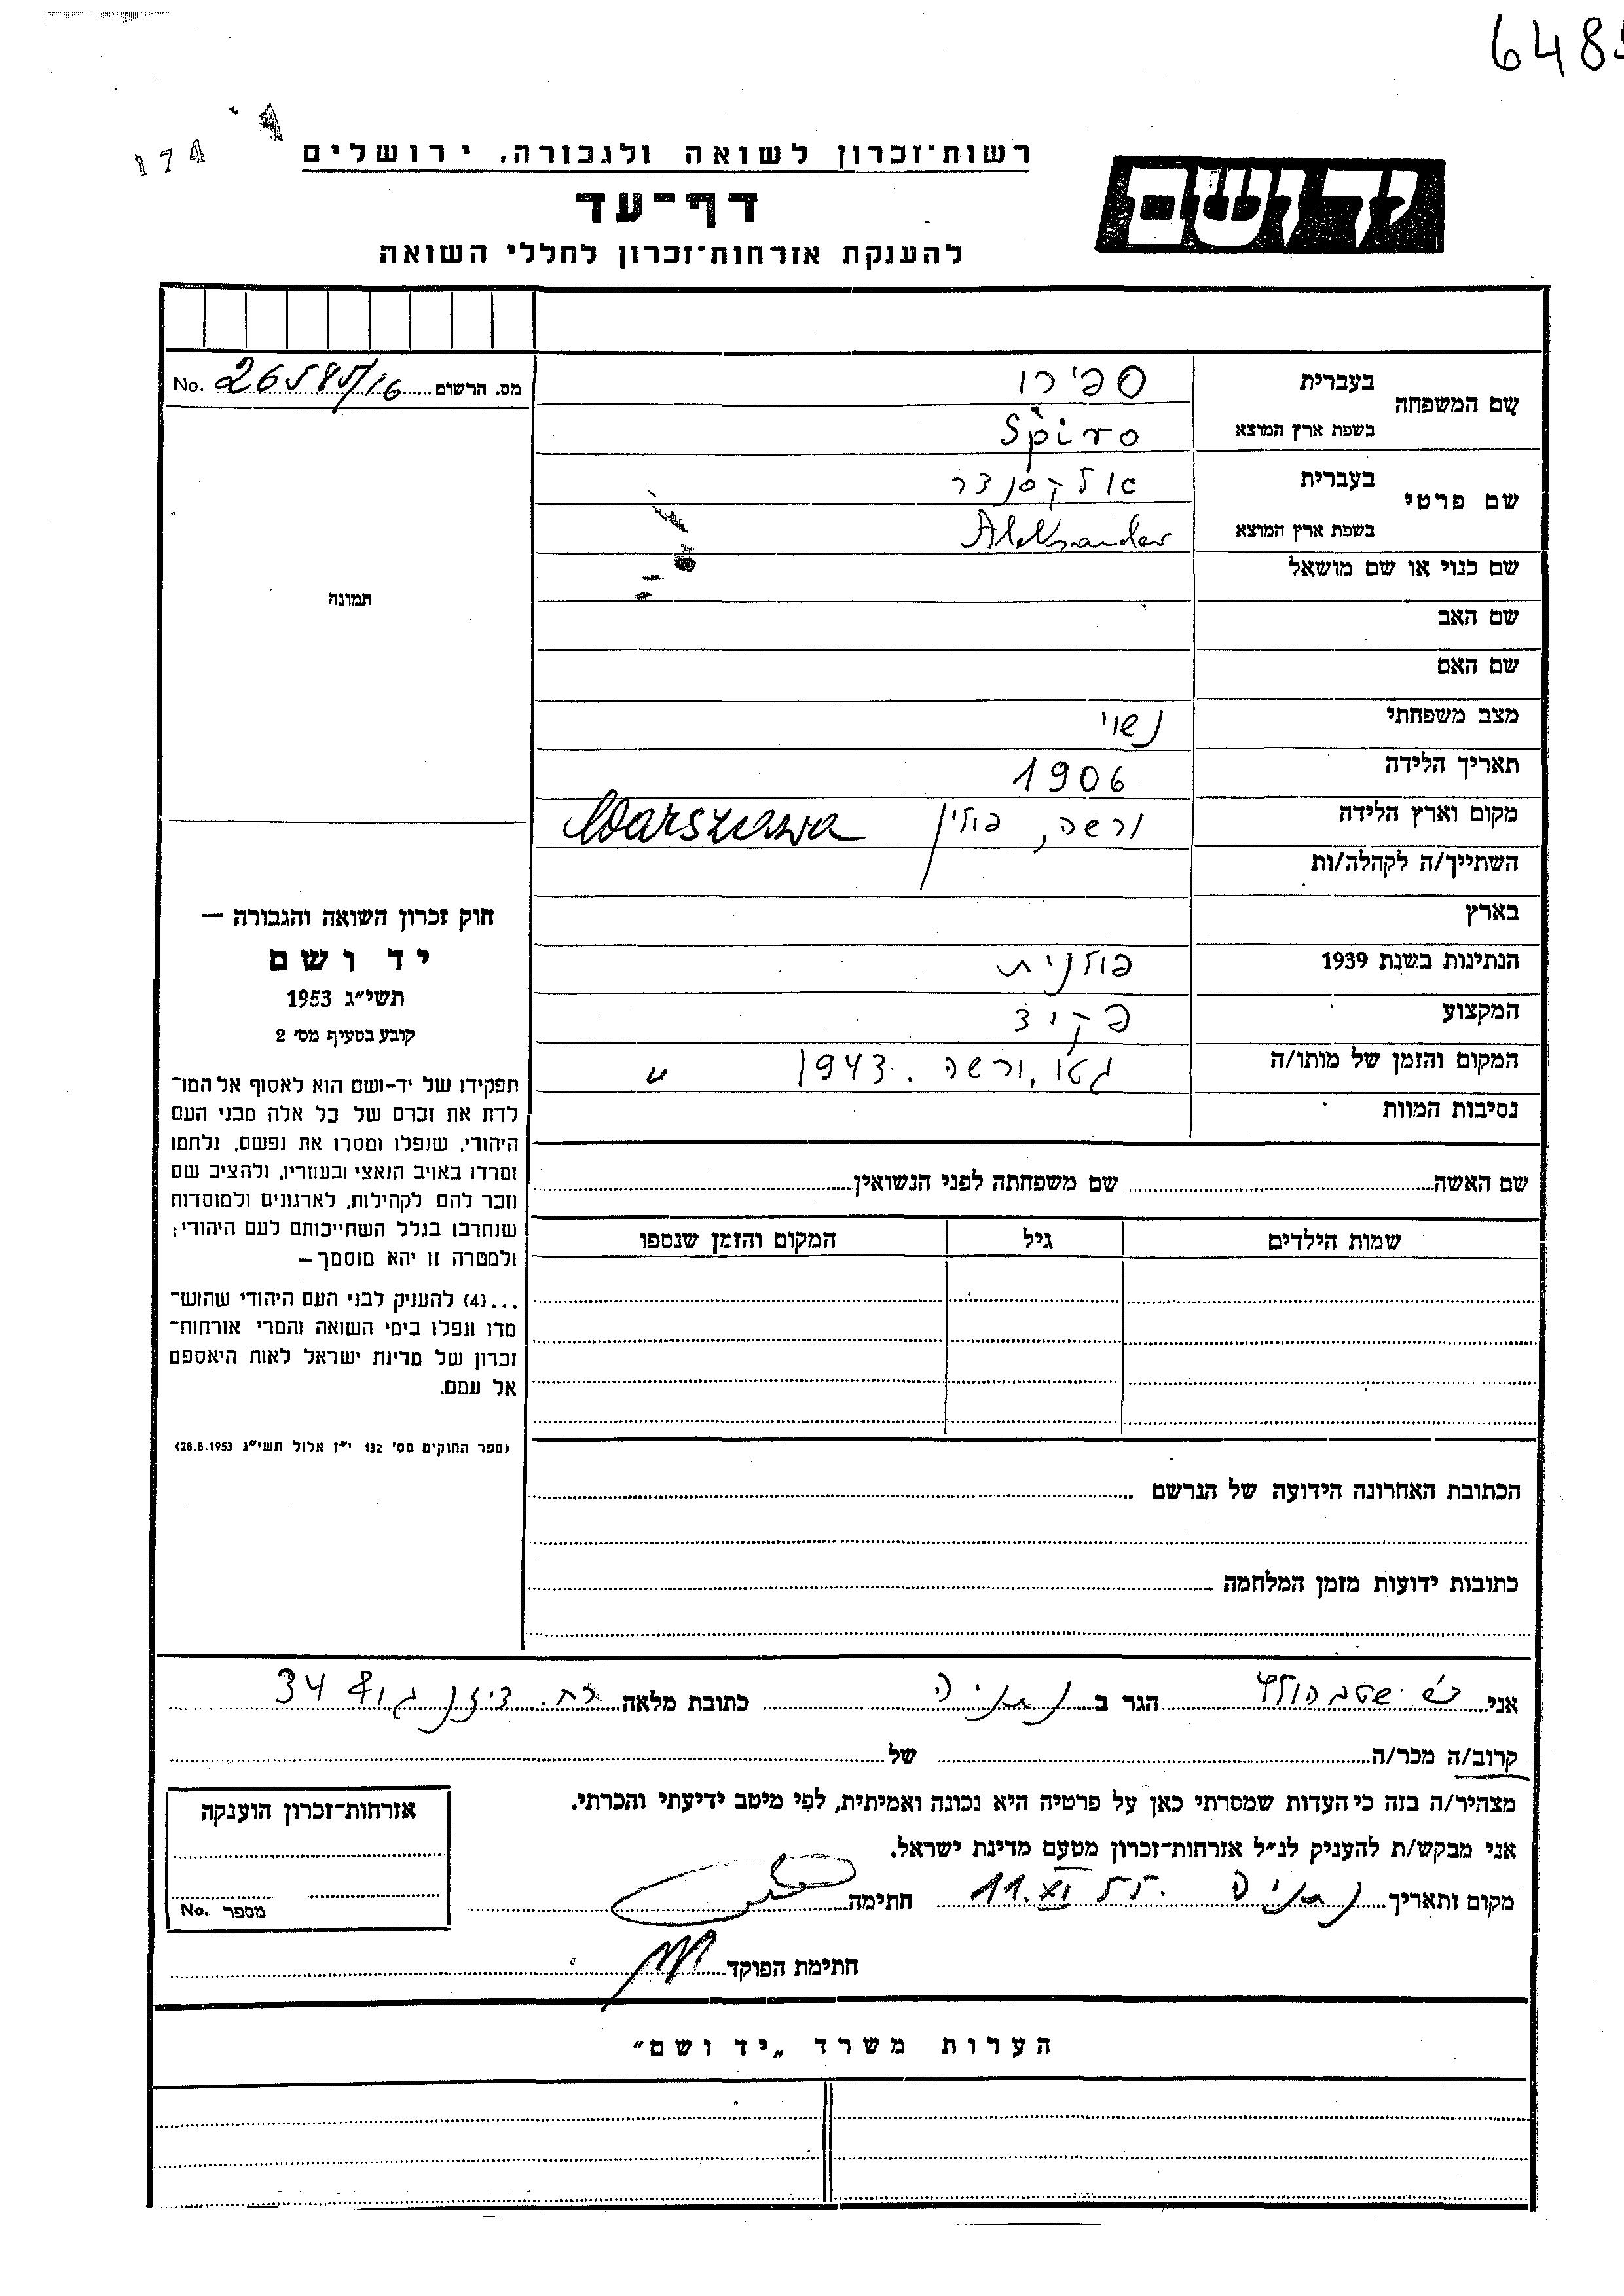 6485
174
רשות־זכרון לשואה ולגבורה, ירושלים
יד ושם
דף־עד
להענקת אזרחות־זכרון לחללי השואה
מס. הרשום 26585/16 No.
שם המשפחה
בעברית ספירו
בשפת ארץ המוצא Spiro
שם פרטי
בעברית אלקסנדר
בשפת ארץ המוצא Aleksander
שם כנוי או שם מושאל
שם האב
שם האם
מצב משפחתי נשוי
תאריך הלידה 1906
מקום וארץ הלידה ורשה, פולין Warszawa
השתייך/ה לקהלה/ות
בארץ
הנתינות בשנת 1939 פולנית
המקצוע פקיד
המקום והזמן של מותו/ה גטו, ורשה. 1943
נסיבות המוות
תמונה
חוק זכרון השואה והגבורה —
יד ושם
תשי״ג 1953
קובע בסעיף מס׳ 2
תפקידו של יד-ושם הוא לאסוף אל המו־
לדת את זכרם של כל אלה מבני העם
היהודי, שנפלו ומסרו את נפשם, נלחמו
ומרדו באויב הנאצי ובעוזריו, ולהציב שם
וזכר להם לקהילות, לארגונים ולמוסדות
שנחרבו בגלל השתייכותם לעם היהודי;
ולמטרה זו יהא מוסמך —
...(4) להעניק לבני העם היהודי שהוש־
מדו ונפלו בימי השואה והמרי אזרחות־
זכרון של מדינת ישראל לאות היאספם
אל עמם.
(ספר החוקים מס׳ 132 י״ז אלול תשי״ג 28.8.1953)
שם האשה שם משפחתה לפני הנשואין
שמות הילדים גיל המקום והזמן שנספו
הכתובת האחרונה הידועה של הנרשם
כתובות ידועות מזמן המלחמה
אני הגר ב נתניה כתובת מלאה רח. דיזנגוף 34
קרוב/ה מכר/ה של
מצהיר/ה בזה כי העדות שמסרתי כאן על פרטיה היא נכונה ואמיתית, לפי מיטב ידיעתי והכרתי.
אני מבקש/ת להעניק לנ״ל אזרחות־זכרון מטעם מדינת ישראל.
מקום ותאריך נתניה 11.XI.55 חתימה
חתימת הפוקד
אזרחות־זכרון הוענקה
מספר No.
הערות משרד „יד ושם״